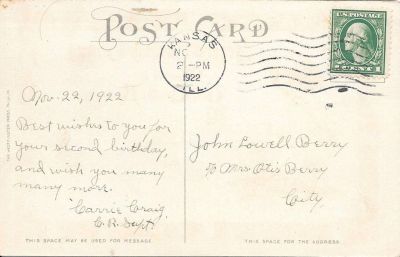 POST CARD
KANSAS
NO
2-PM
1922
ILL.
U.S. POSTAGE
Nov. 22, 1922
Best wishes to you for
your second birthday,
and wish you many
many more.
Carrie Craig,
C. R. Supt.
John Lowell Berry
℅ Mrs Otis Berry
City
THIS SPACE MAY BE USED FOR MESSAGE
THIS SPACE FOR THE ADDRESS